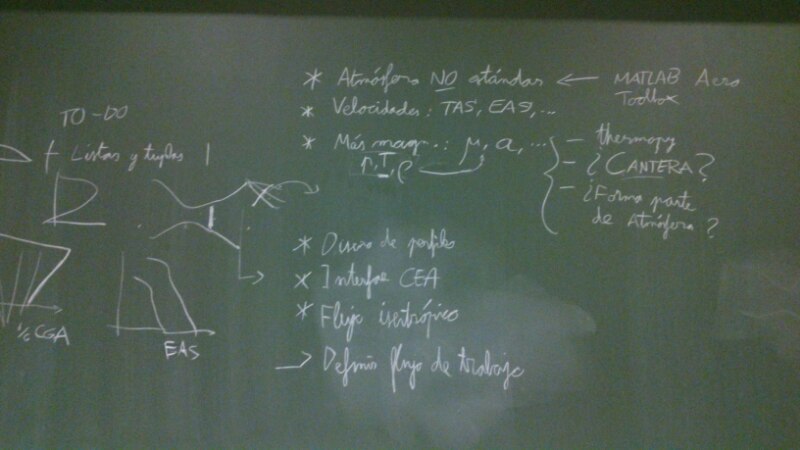 TO-DO
Listas y tuplas
* Atmósfera NO estándar ← MATLAB Aero
Toolbox
* Velocidades: TAS, EAS, ...
* Más mag.: μ, a, ...
P, T, ρ
- thermopy
- ¿CANTERA?
- ¿Forma parte
de Atmósfera?
* de perfiles
* Interfaz CEA
* Flujo isentrópico
→ Definir flujo de trabajo
% CGA
EAS